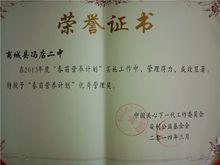 荣誉证书
商城县冯店二中
在2013年度“春苗营养计划”实施工作中，管理得力，成效显著。
特授予“春苗营养计划”优秀管理奖。
中国关心下一代工作委员会
安利公益基金会
二〇一四年三月